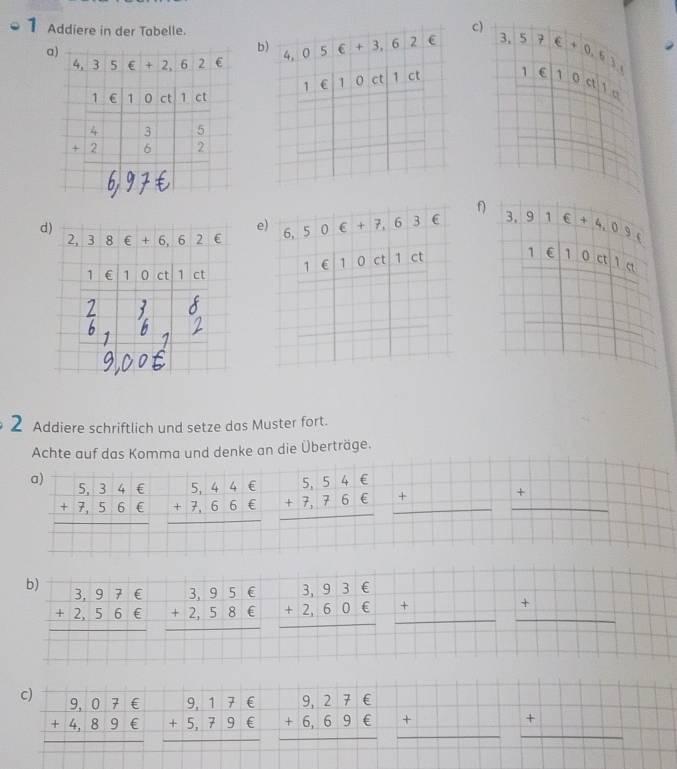 1 Addiere in der Tabelle.
a) 4,35 € + 2,62 €
1 € 10 ct 1 ct
4 3 5
+ 2 6 2
6,97 €
b) 4,05 € + 3,62 €
1 € 10 ct 1 ct
c) 3,57 € + 0,63 €
1 € 10 ct 1 ct
d) 2,38 € + 6,62 €
1 € 10 ct 1 ct
2 3 8
6 1 6 1 2
9,00 €
e) 6,50 € + 7,63 €
1 € 10 ct 1 ct
f) 3,91 € + 4,09 €
1 € 10 ct 1 ct
2 Addiere schriftlich und setze das Muster fort.
Achte auf das Komma und denke an die Überträge.
a) 5,34 € 5,44 € 5,54 €
+ 7,56 € + 7,66 € + 7,76 € + +
b) 3,97 € 3,95 € 3,93 €
+ 2,56 € + 2,58 € + 2,60 € + +
c) 9,07 € 9,17 € 9,27 €
+ 4,89 € + 5,79 € + 6,69 € + +